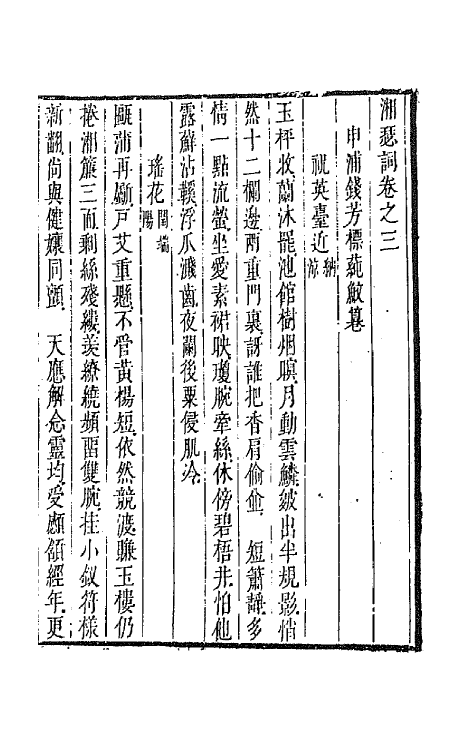 湘瑟詞卷之三
申浦錢芳標葆馚篹
祝英臺近 納涼
玉枰收蘭沐罷池館樹烟暝月動雲鱗皴出半規影悄
然十二欄邊兩重門裏訝誰把香肩偷並 短簫靜多
情一點流螢坐愛素裙映瓊腕牽絲休傍碧梧井怕他
露蘚沾鞵浮瓜濺齒夜闌後粟侵肌冷
瑤花 閏端陽
甌蒲再劚戸艾重懸不管黃楊短依然競渡賺玉樓仍
捲湘簾三面剩絲殘縷羨繚繞頻酣雙腕挂小釵符樣
新翻尚與健孃同顫 天應解念靈均受顑頷經年更